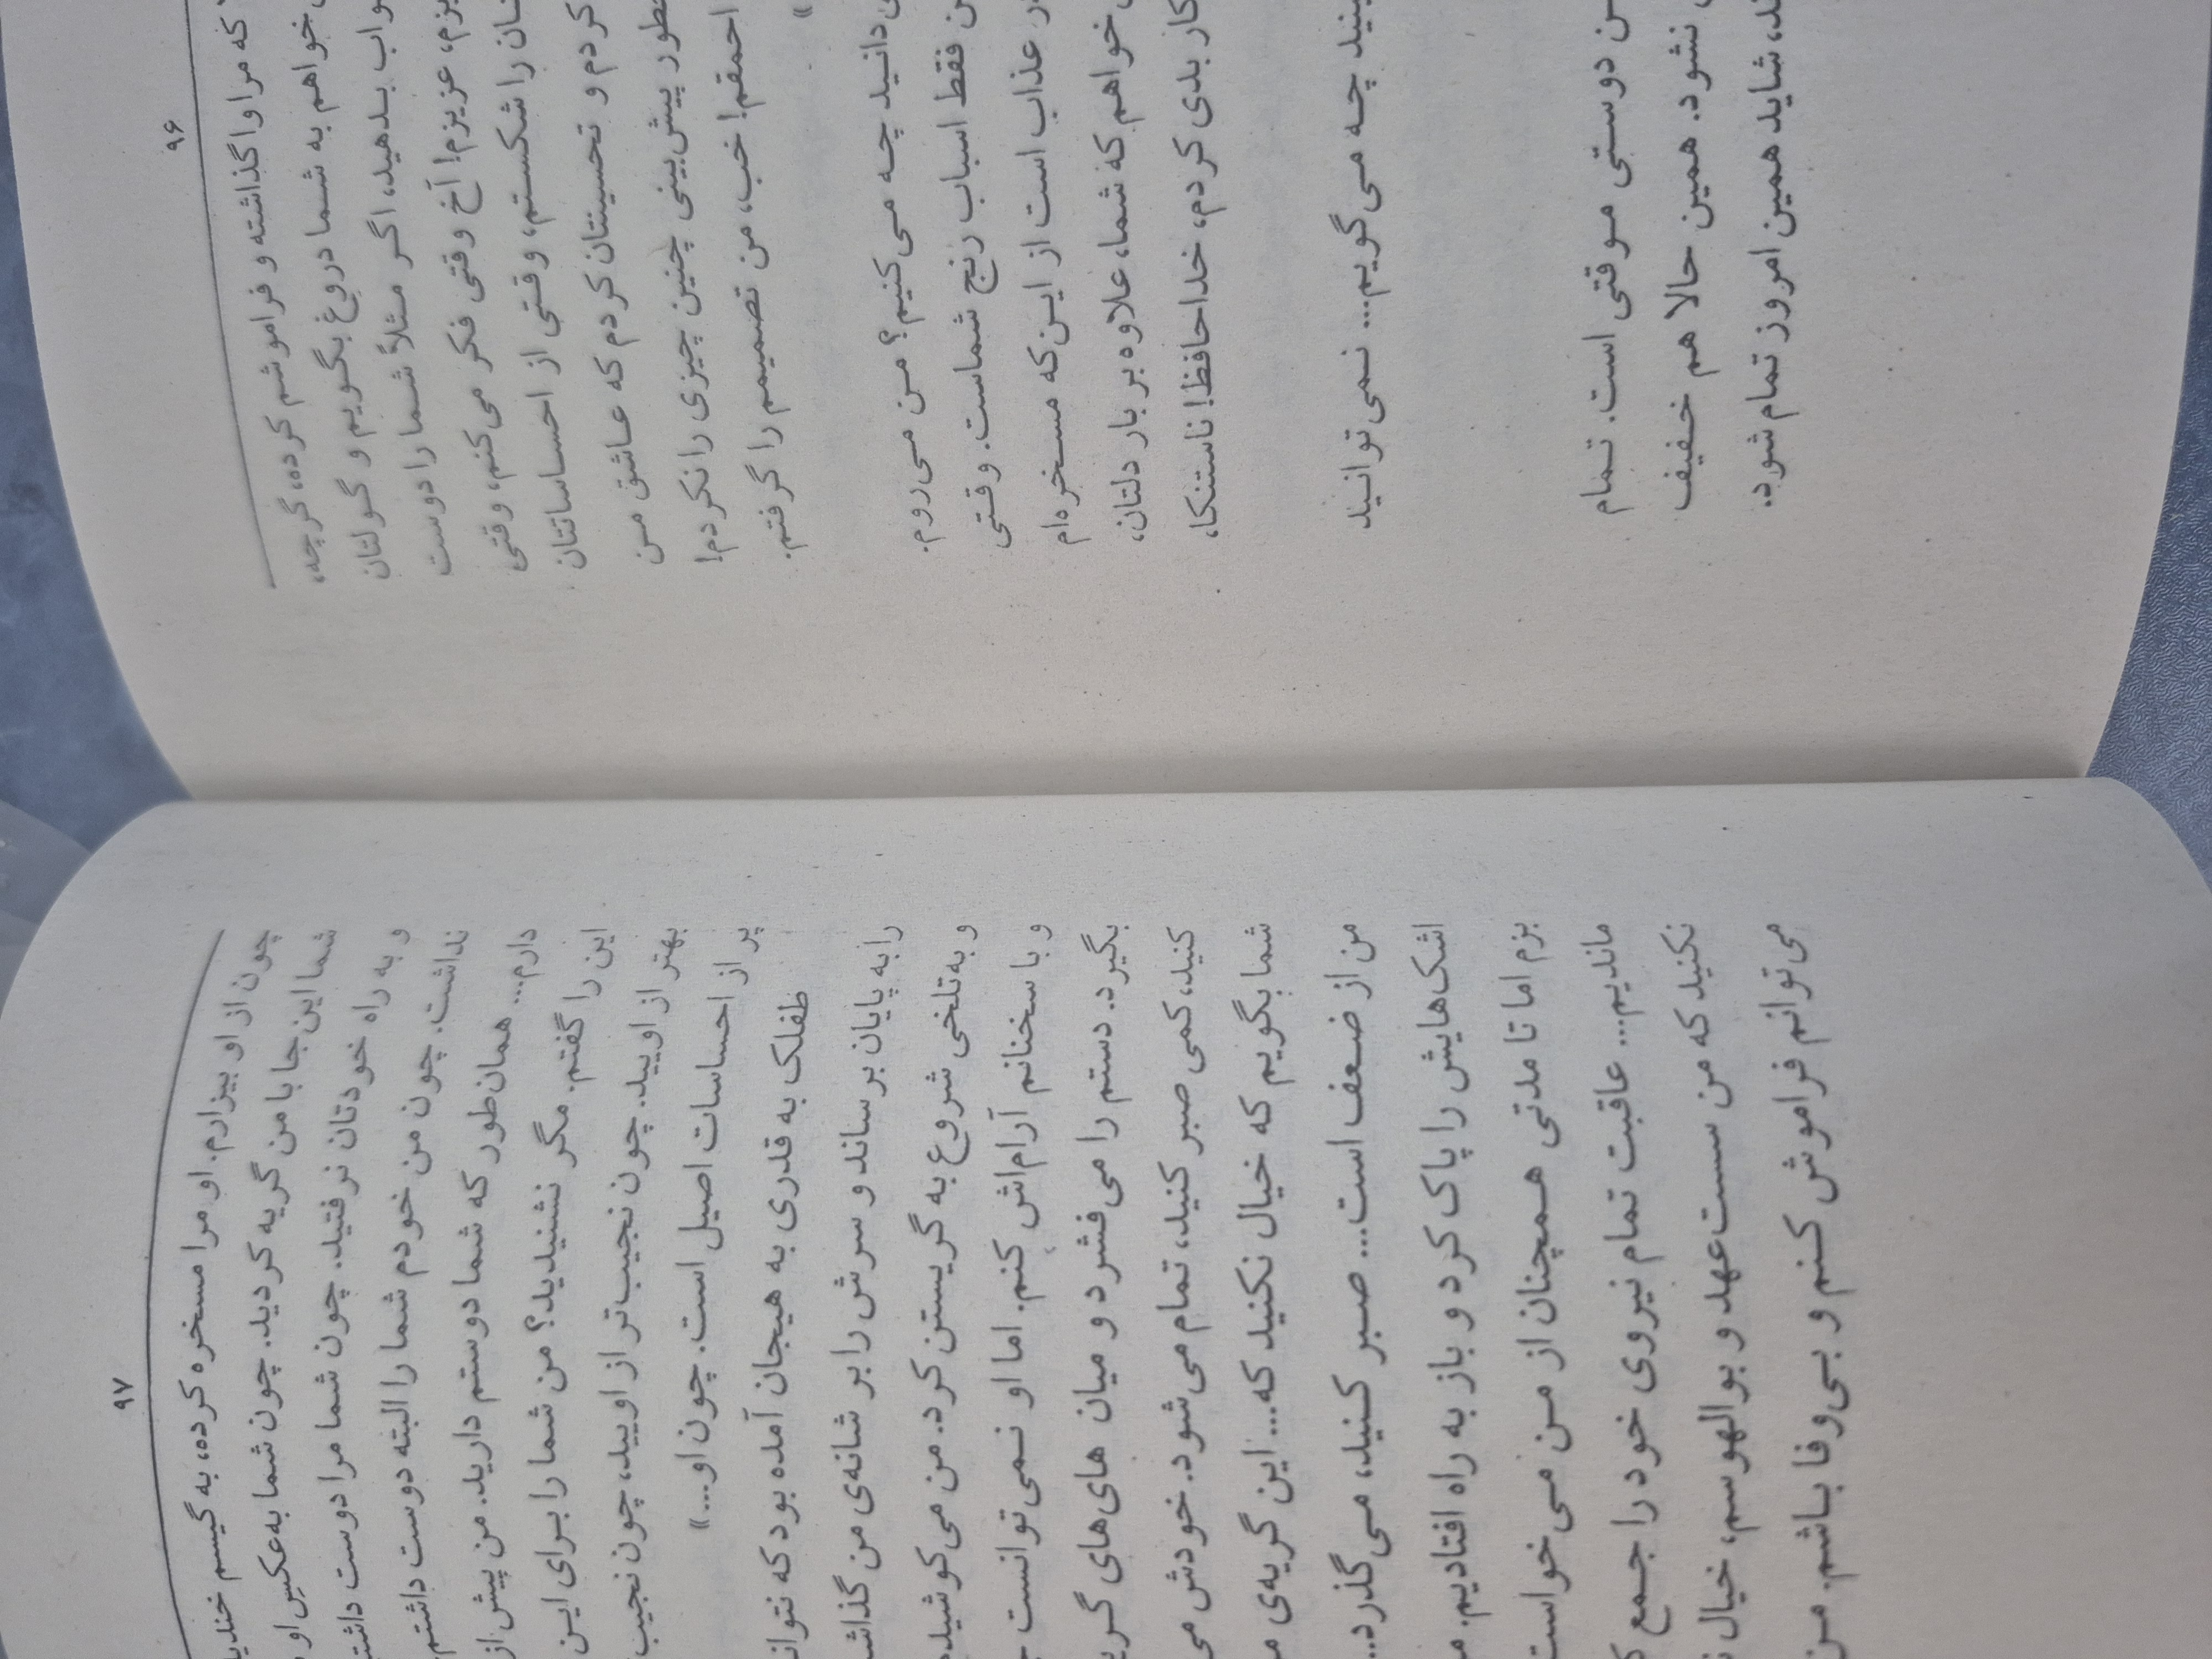 ۹۶
که مرا واگذاشته و فراموشم کرده، گرچه،
خواهم به شما دروغ بگویم و گولتان
بدهید، اگر مثلاً شما را دوست
عزیزم! آخ وقتی فکر می‌کنم، وقتی
را شکستم، وقتی از احساساتتان
کردم و تحسینتان کردم که عاشق من
پیش‌بینی چنین چیزی را نکردم!
احمقم! خب، من تصمیمم را گرفتم.
»
دانید چه می‌کنیم؟ من می‌روم.
فقط اسباب رنج شماست. وقتی
عذاب است از این‌که مسخره‌ام
خواهم که شما، علاوه بر بار دلتان،
کار بدی کردم، خداحافظ! ناستنکا،
چه می‌گویم... نمی‌توانید
دوستی موقتی است. تمام
نشود. همین حالا هم خفیف
شاید همین امروز تمام شود.
۹۷
چون از او بیزارم. او مرا مسخره کرده، به گیسم
شما این‌جا با من گریه کردید. چون شما به‌عکس او
و به راه خودتان نرفتید. چون شما مرا دوست
نداشت. چون من خودم شما را البته دوست داشتم
دارم... همان‌طور که شما دوستم دارید. من پیش از
این را گفتم. مگر نشنیدید؟ من شما را برای این
بهتر از اویید. چون نجیب‌تر از اویید، چون نجیب
پر از احساسات اصیل است. چون او...»
طفلک به قدری به هیجان آمده بود که
را به پایان برساند و سرش را بر شانه‌ی من
و به تلخی شروع به گریستن کرد. من می‌کوشیدم
و با سخنانم آرام‌اش کنم. اما او نمی‌توانست
بگیرد. دستم را می‌فشرد و میان های‌های
کنید، کمی صبر کنید، تمام می‌شود. خودش
شما بگویم که خیال نکنید که... این گریه‌ی
من از ضعف است... صبر کنید، می‌گذرد...
اشک‌هایش را پاک کرد و باز به راه افتادیم.
بزم اما تا مدتی همچنان از من می‌خواست
ماندیم... عاقبت تمام نیروی خود را جمع
نکنید که من سست‌عهد و بوالهوسم، خیال
می‌توانم فراموش کنم و بی‌وفا باشم. من